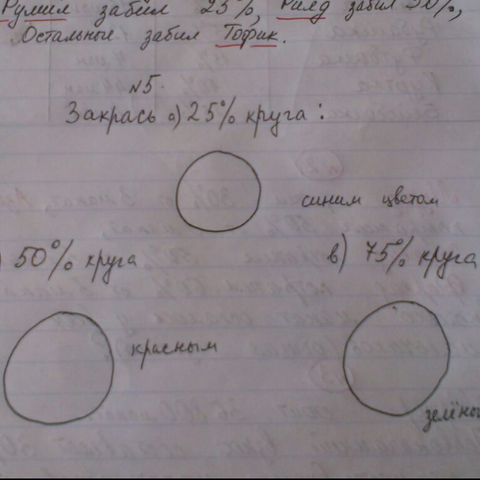 Румил забил 25%, Рилд забил 50%,
Остальные забил Тофик.
№5.
Закрась а) 25% круга:
синим цветом
) 50% круга
в) 75% круга
красным
зелёны